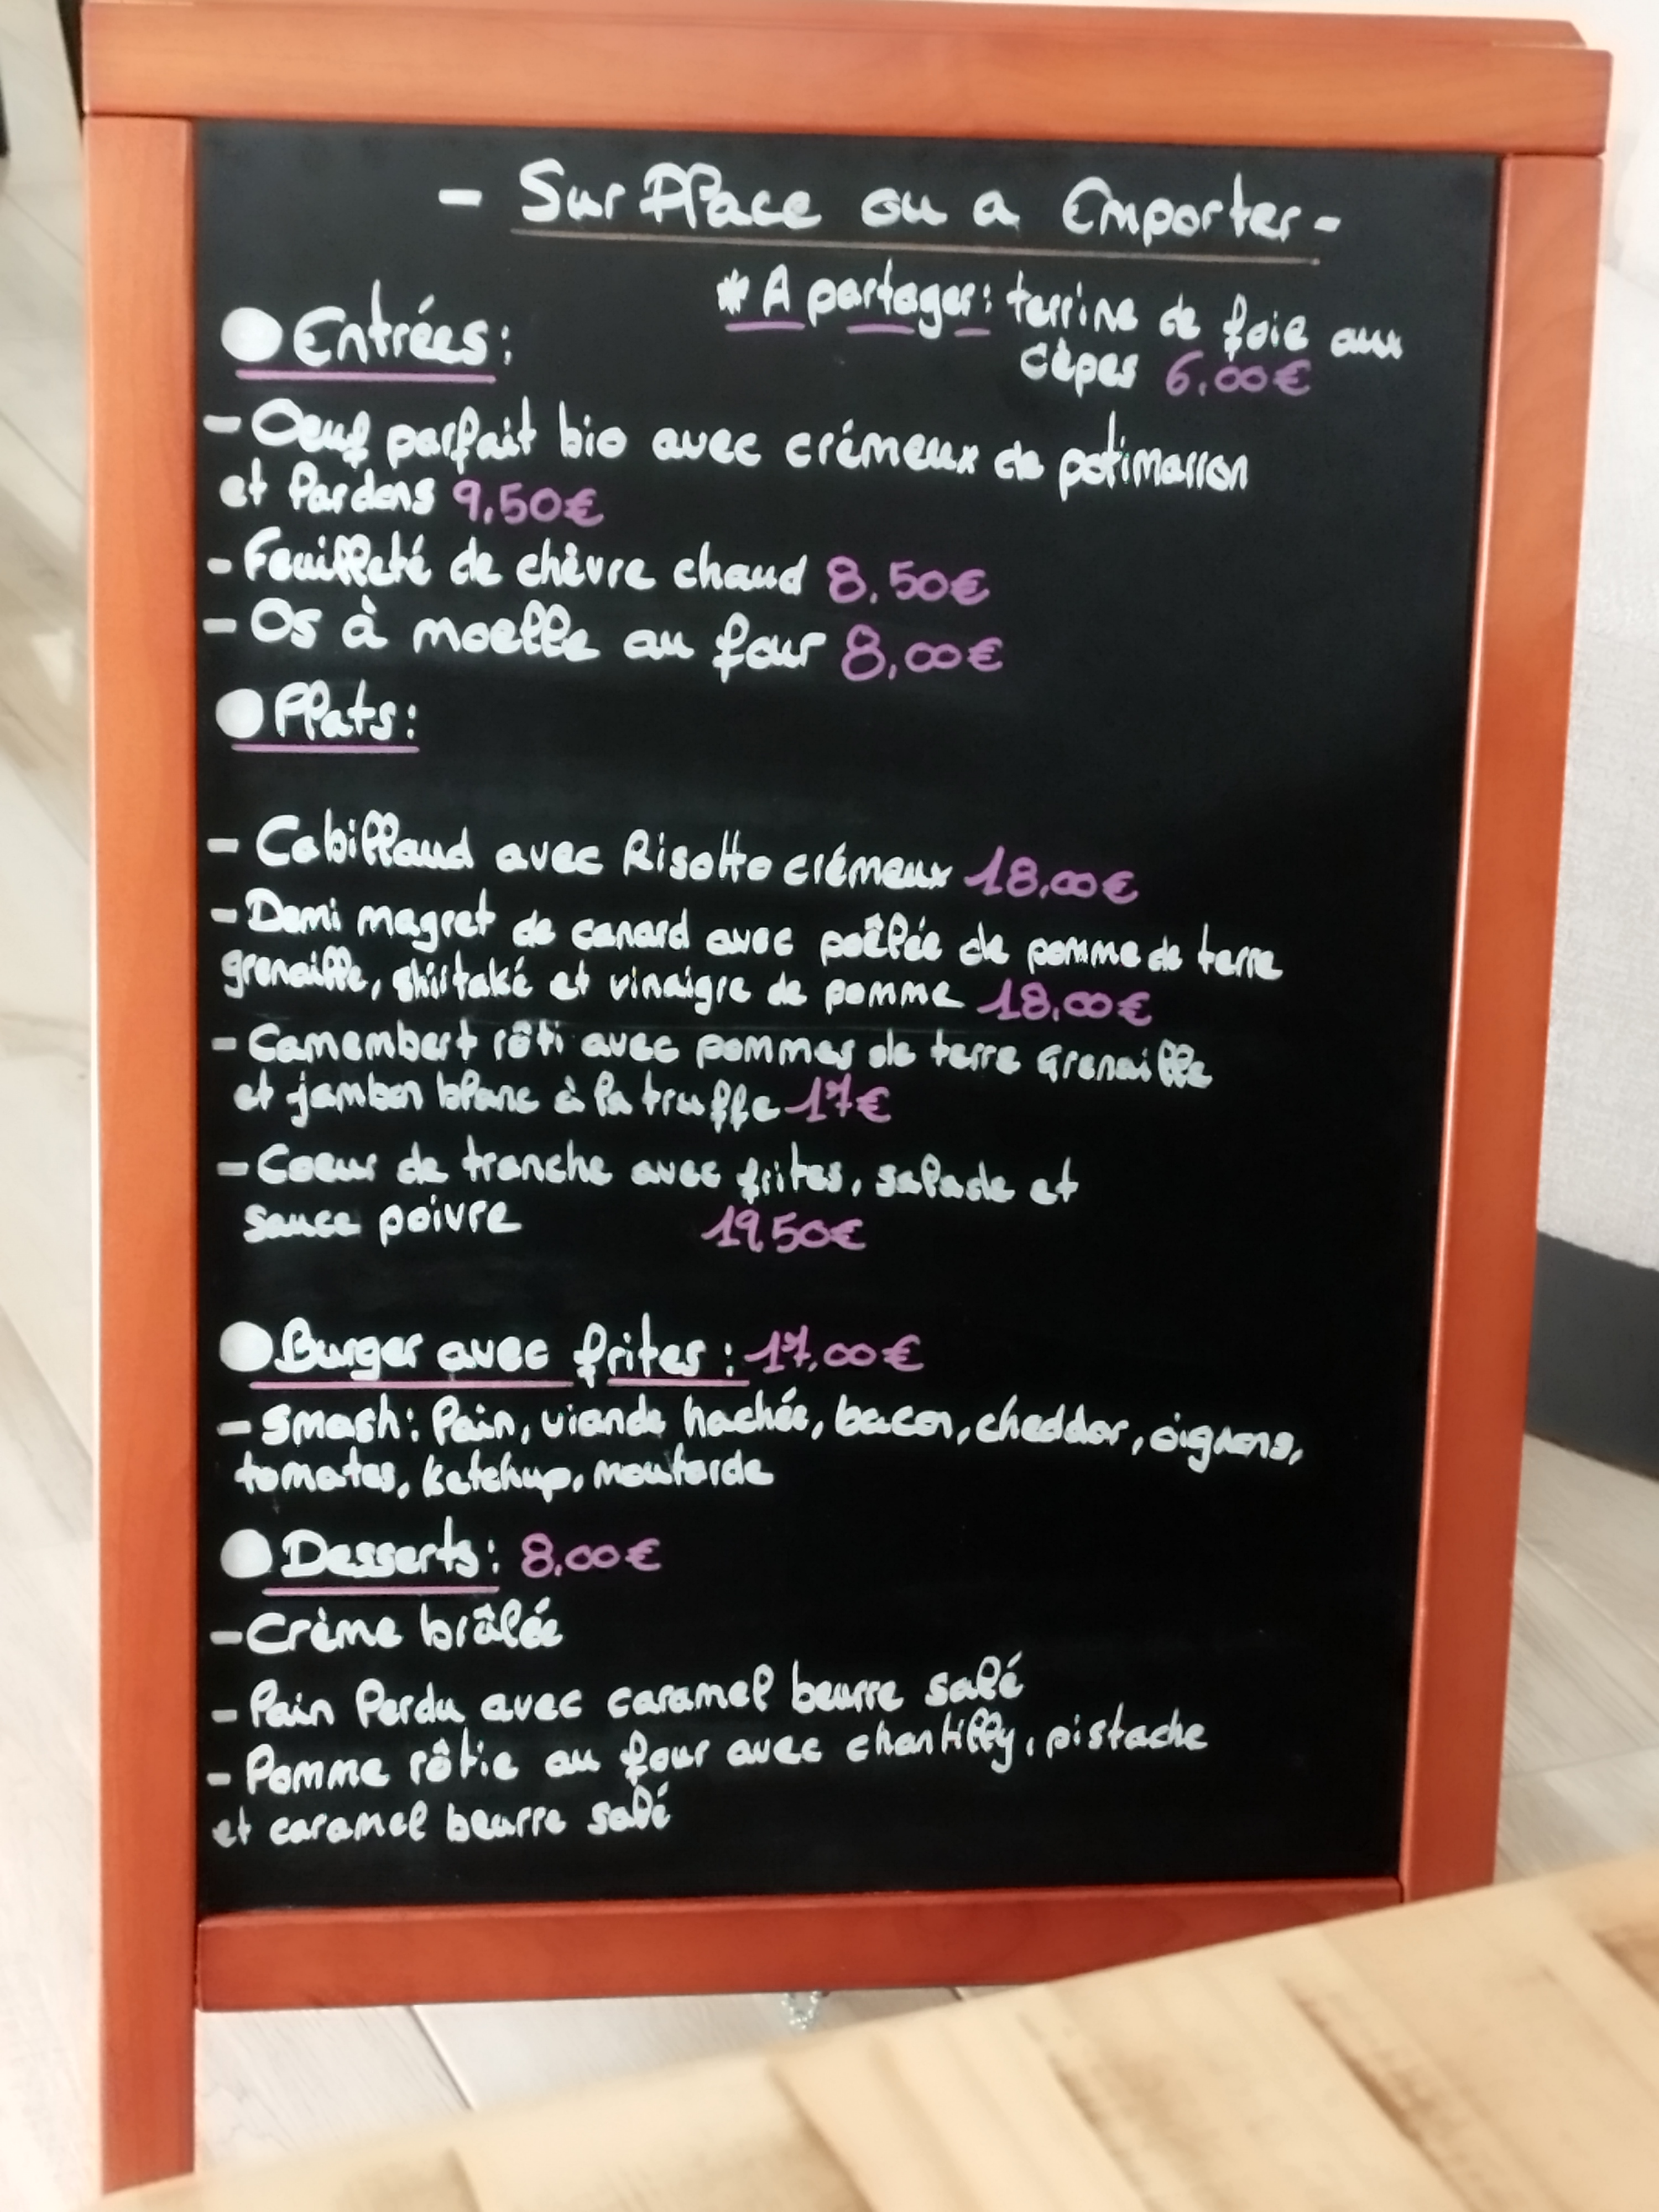 - Sur Place ou a Emporter -
* A partager: terrine de foie aux
cèpes 6,00€
Entrées:
- Oeuf parfait bio avec crémeux de potimarron
et lardons 9,50€
- Feuilleté de chèvre chaud 8,50€
- Os à moelle au four 8,00€
Plats:
- Cabillaud avec Risotto crémeux 18,00€
- Demi magret de canard avec poêlée de pomme de terre
grenaille, shiitaké et vinaigre de pomme 18,00€
- Camembert rôti avec pommes de terre Grenaille
et jambon blanc à la truffe 17€
- Coeur de tranche avec frites, salade et
sauce poivre 19,50€
Burger avec frites : 17,00€
- Smash: Pain, viande hachée, bacon, cheddar, oignons,
tomates, ketchup, moutarde
Desserts: 8,00€
- Crème brûlée
- Pain Perdu avec caramel beurre salé
- Pomme rôtie au four avec chantilly, pistache
et caramel beurre salé